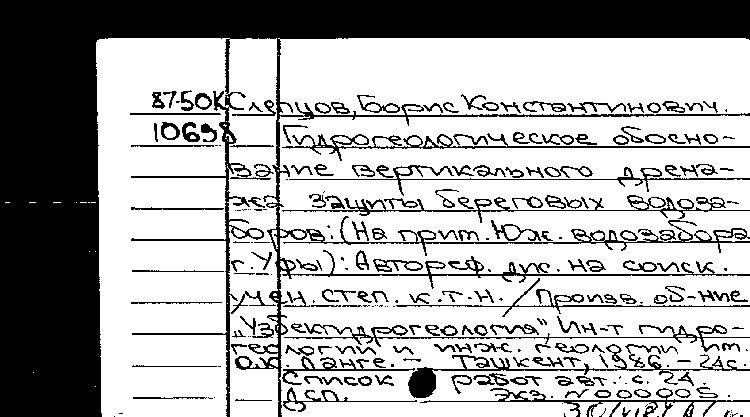 87-50К Слепцов, Борис Константинович.
10698 Гидрогеологическое обосно-
вание вертикального дрена-
жа защиты береговых водоза-
боров: (На прим. Юж. водозабора
г. Уфы): Автореф. дис. на соиск.
учен. степ. к.т.н. / Произв. об-ние
"Узбекгидрогеология", Ин-т гидро-
геологии и инж. геологии им.
О.К. Ланге. - Ташкент, 1986. - 24с.
Список работ авт.: с. 24.
Дсп. Экз. N 000005.